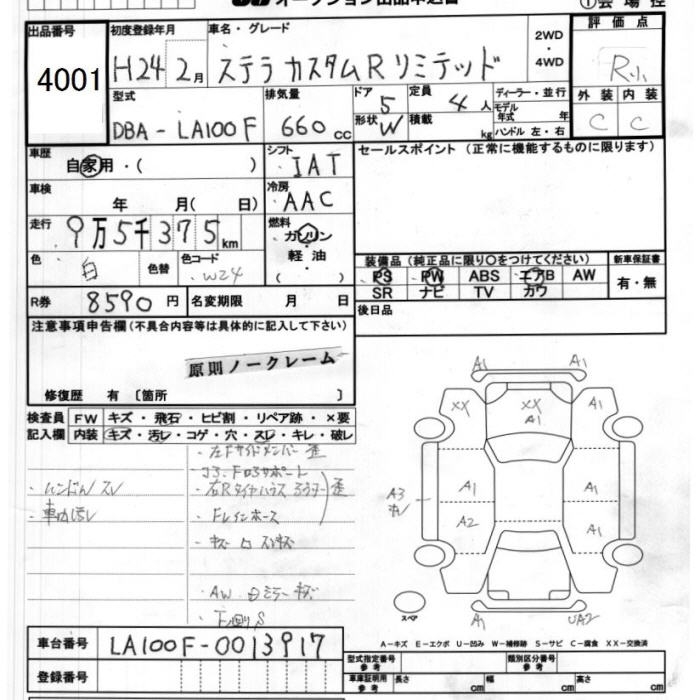 オークション出品申込書
①会場控
出品番号 初度登録年月 車名・グレード 評価点
4001 H24 2月 ステラ カスタムR リミテッド 2WD・4WD R小
型式 排気量 ドア 定員 ディーラー・並行 外装 内装
DBA-LA100F 660cc 5 4人 モデル年式 年 C C
形状 W 積載 kg ハンドル 左・右
車歴 自家用・( ) シフト IAT セールスポイント (正常に機能するものに限ります)
車検 年 月( 日) 冷房 AAC
走行 9万5千375km 燃料 ガソリン・軽油 ( )
色 白 色替 色コード W24
装備品 (純正品に限り○をつけてください) 新車保証書
PS PW ABS エアB AW 有・無
SR ナビ TV カワ
R券 8590円 名変期限 月 日 後日品
注意事項申告欄 (不具合内容等は具体的に記入して下さい)
原則ノークレーム
修復歴 有 〔箇所 〕
検査員記入欄 FW キズ・飛石・ヒビ割・リペア跡・×要
内装 キズ・汚レ・コゲ・穴・スレ・キレ・破レ
・左Fサイドメンバー 歪
・ハンドル スレ
・車内汚レ
・Fレインホース
・AW ミラー キズ
・下回りS
A1 A1
XX XX A1 A1
A3 A1 A1
A2 A1
スペア A1 UA2
A-キズ E-エクボ U-凹み W-補修跡 S-サビ C-腐食 XX-交換済
車台番号 LA100F-0013917
登録番号
型式指定番号 参考 類別区分番号 参考
車庫証明用 参考 長さ cm 幅 cm 高さ cm